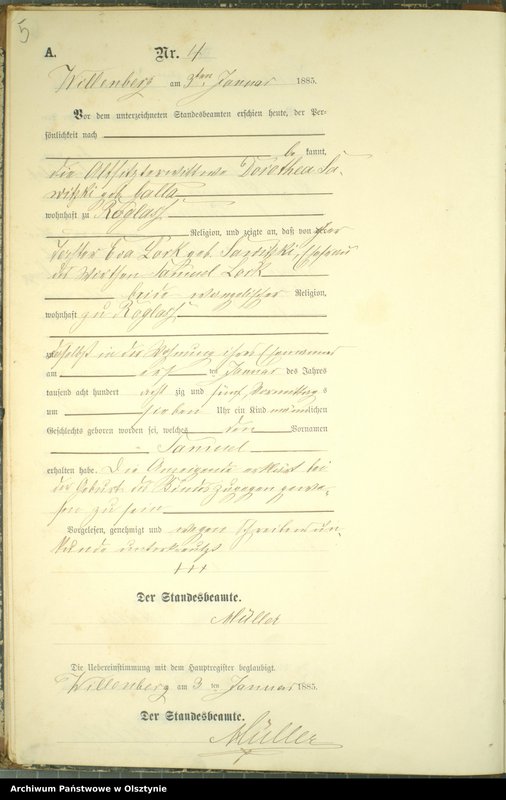 5
A. Nr. 4
Willenberg am 3ten Januar 1885.
Vor dem unterzeichneten Standesbeamten erschien heute, der Per-
sönlichkeit nach
be kannt,
die Altsitzerwittwe Dorothea Sa-
witzki geb. Galla
wohnhaft zu Röglas,
Religion, und zeigte an, daß von ihrer
Tochter Eva Lork geb. Sawitzki, Ehefrau
des Wirthen Samuel Lork
beide evangelischer Religion,
wohnhaft zu Röglas,
daselbst in der Wohnung ihres Ehemannes
am ten Januar des Jahres
tausend acht hundert acht zig und fünf Vormittags
um sieben Uhr ein Kind männlichen
Geschlechts geboren worden sei, welches den Vornamen
Samuel
erhalten habe. Die Anzeigende erklärt bei
der Geburt des Kindes zugegen gewe-
sen zu sein
Vorgelesen, genehmigt und wegen Schreibensun-
kunde unterkreuzt
+++
Der Standesbeamte.
Müller
Die Uebereinstimmung mit dem Hauptregister beglaubigt.
Willenberg am 3 ten Januar 1885.
Der Standesbeamte.
Müller
Archiwum Państwowe w Olsztynie